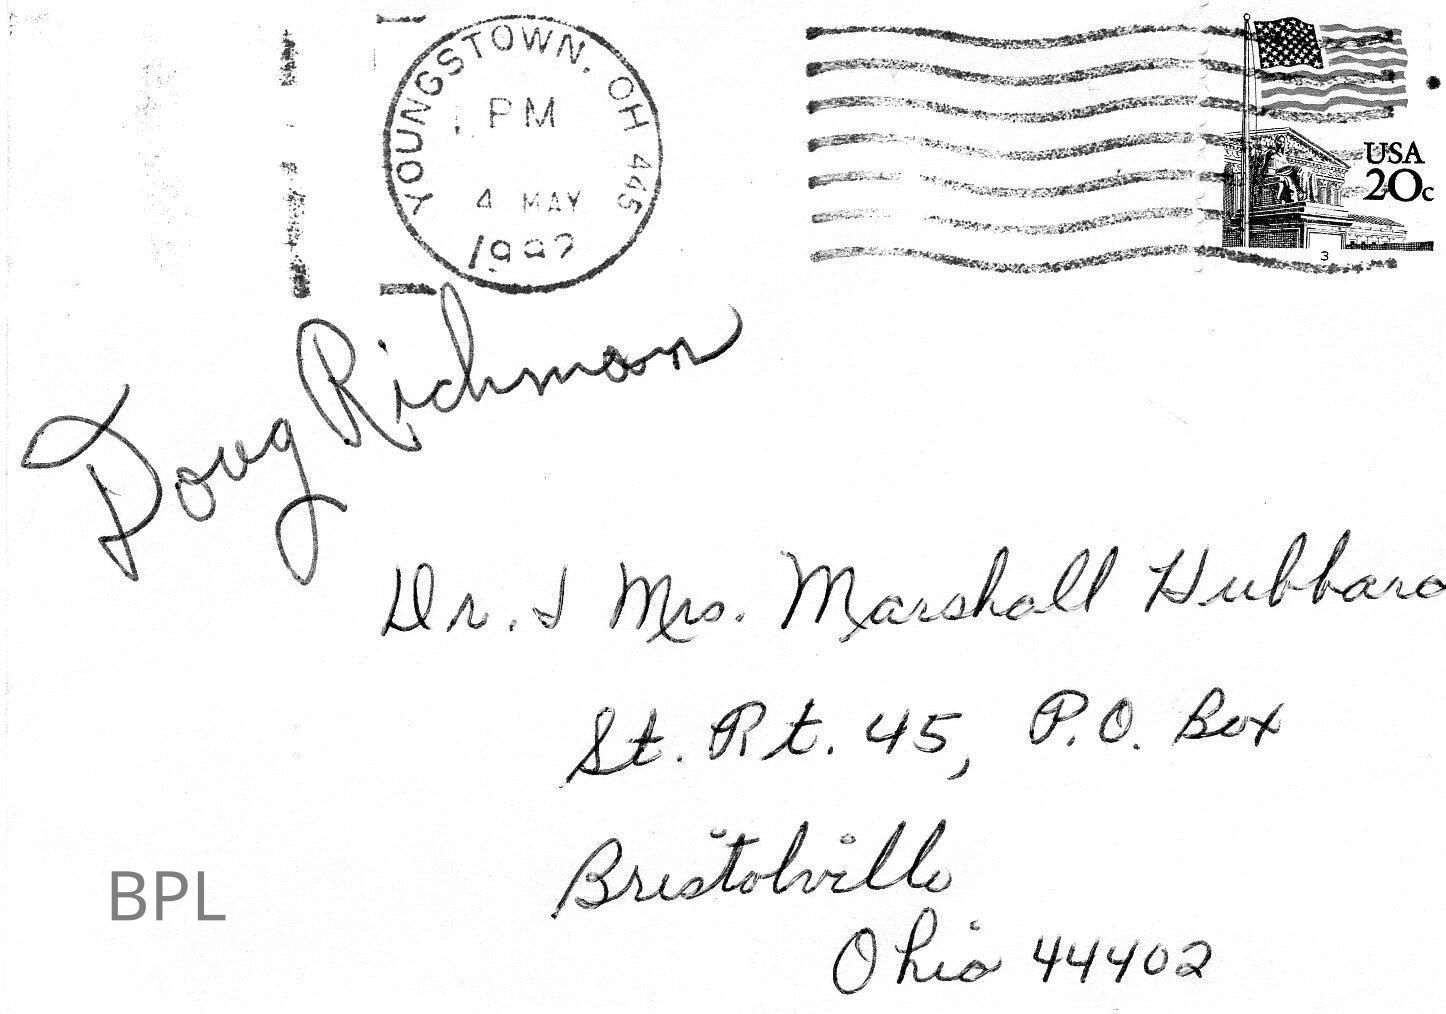 YOUNGSTOWN, OH 445
PM
4 MAY
USA
20c
3
Doug Richman
Dr. & Mrs. Marshall Hubbard
St. Rt. 45, P.O. Box
Bristolville
Ohio 44402
BPL